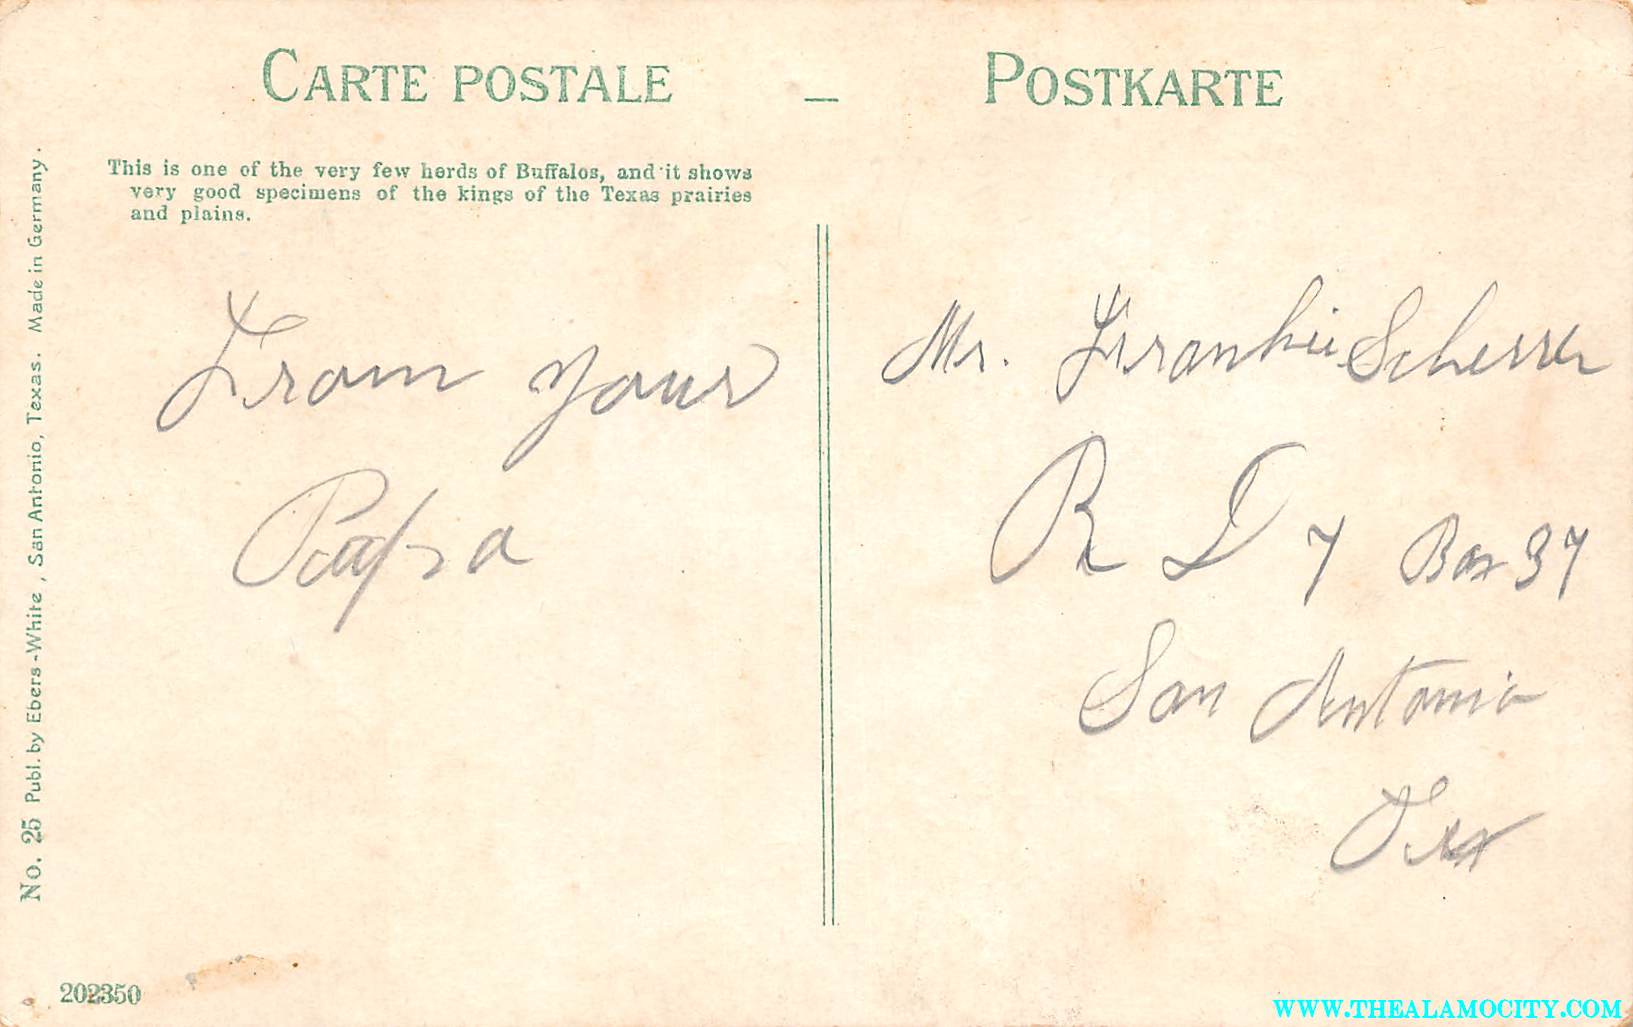 CARTE POSTALE — POSTKARTE
This is one of the very few herds of Buffalos, and it shows
very good specimens of the kings of the Texas prairies
and plains.
No. 25 Publ. by Ebers-White, San Antonio, Texas. Made in Germany.
From your
Papa
Mr. Frankie Scherrer
R D 7 Box 37
San Antonio
Tex
202350
WWW.THEALAMOCITY.COM